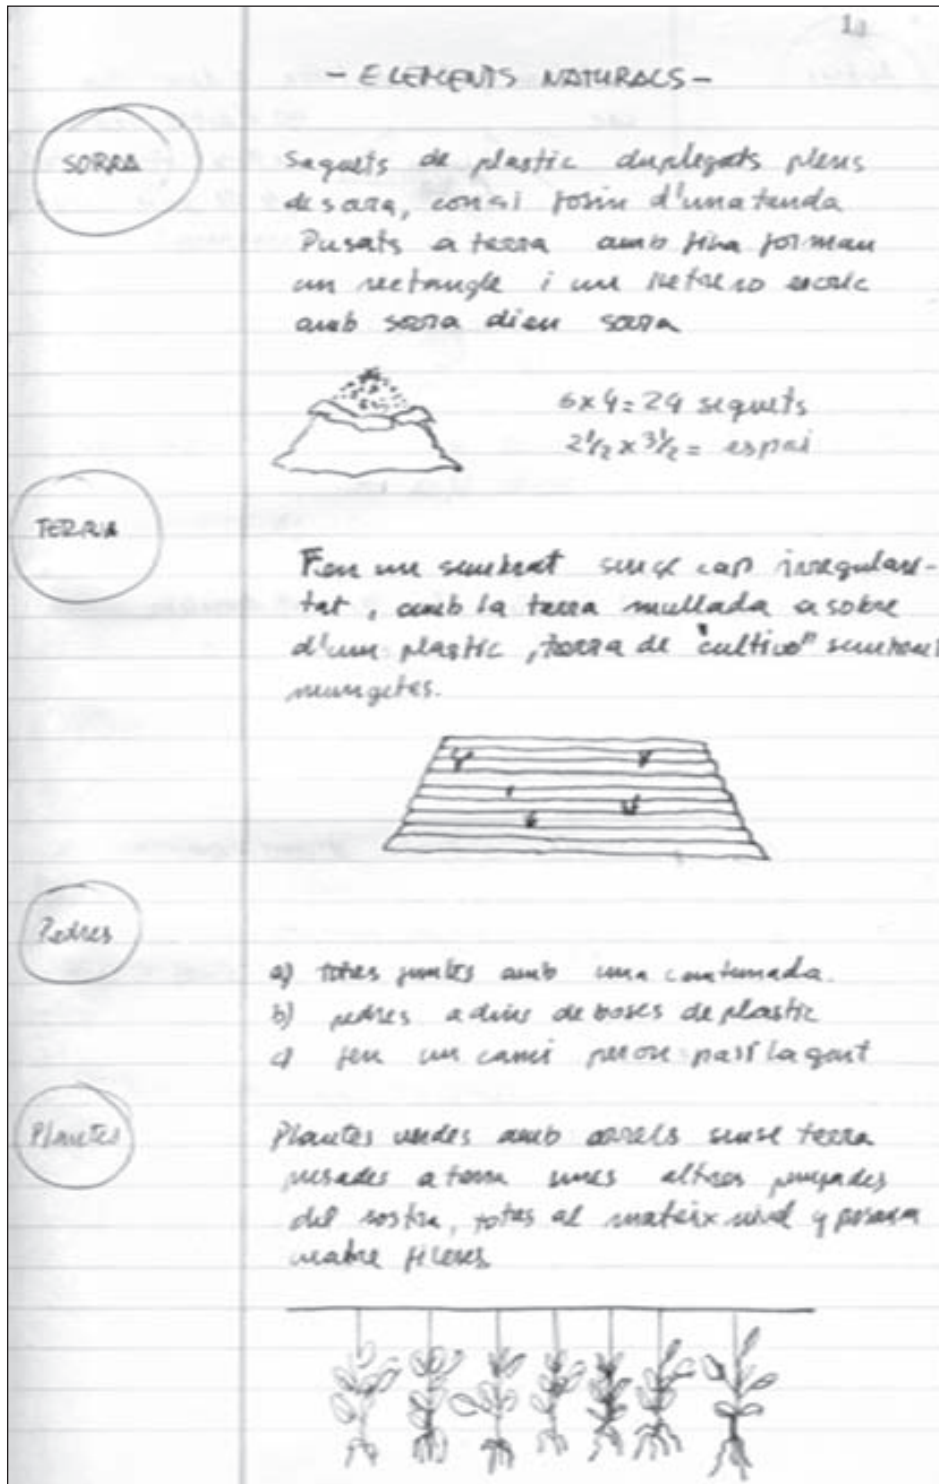 11
- ELEMENTS NATURALS -
SORRA
Saquets de plastic duplegats plens
de sorra, com si fosin d'una tenda
Pusats a terra amb fina forman
un rectangle i un letrero escric
amb sorra dien sorra
6x4=24 sequets
2 1/2 x 3 1/2 = espai
TERRA
Fen un sembrat sense cap irregulari-
tat, amb la terra mullada a sobre
d'un plastic, terra de "cultivo" sembrant
mungetes.
Pedres
a) totes juntes amb una contunada.
b) pedres a dins de boses de plastic
c) fen un cami per on pasi la gent
Plantes
Plantes verdes amb arrels sense terra
pusades a terra unes altres penjades
del sostra, totes al mateix nivel y posara
cuatre fileres